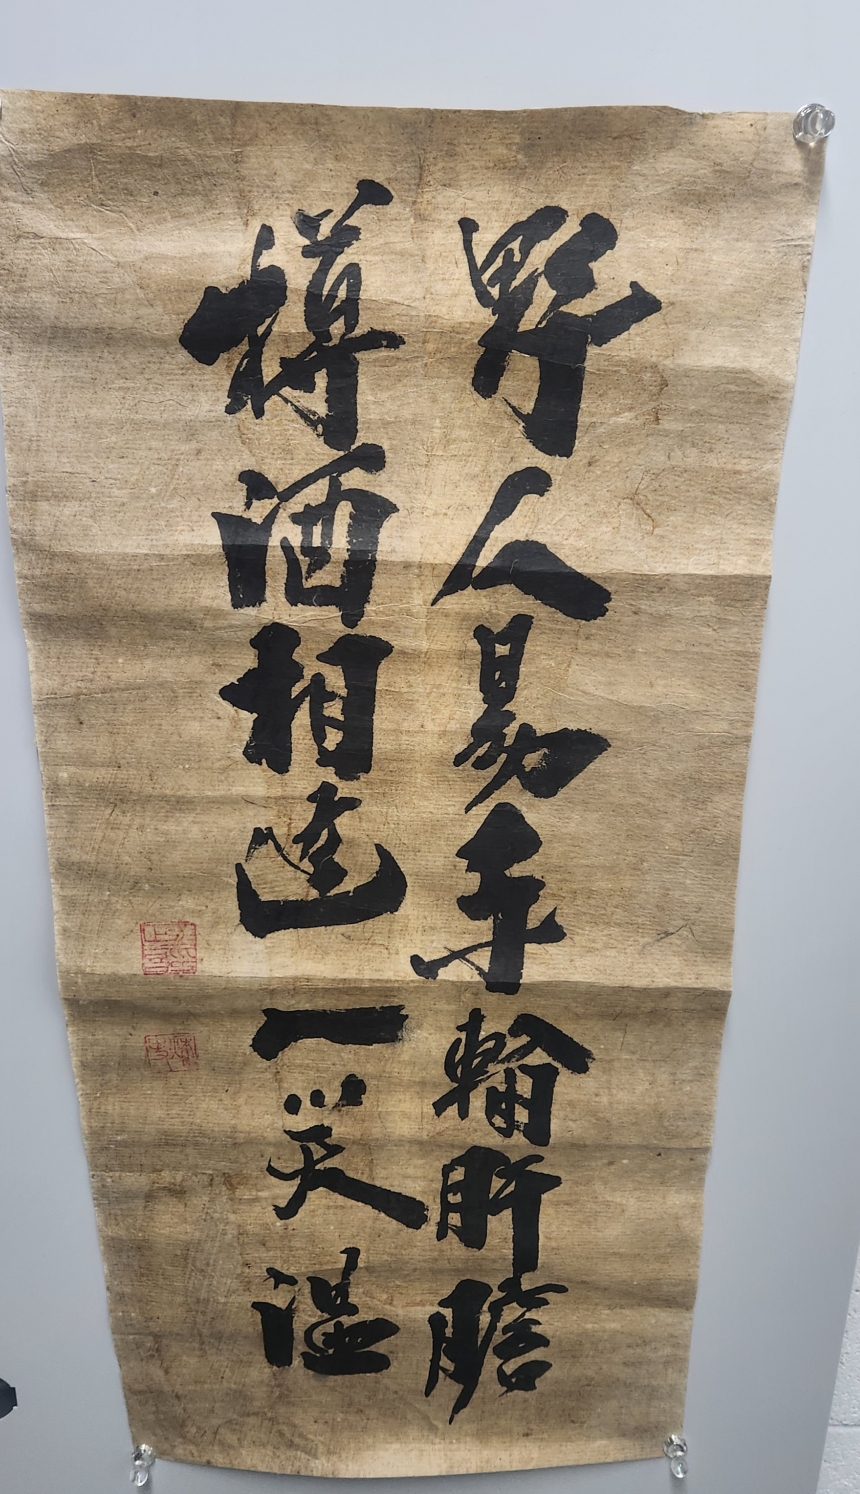 野人易與輸肝膽
樽酒相逢一笑溫